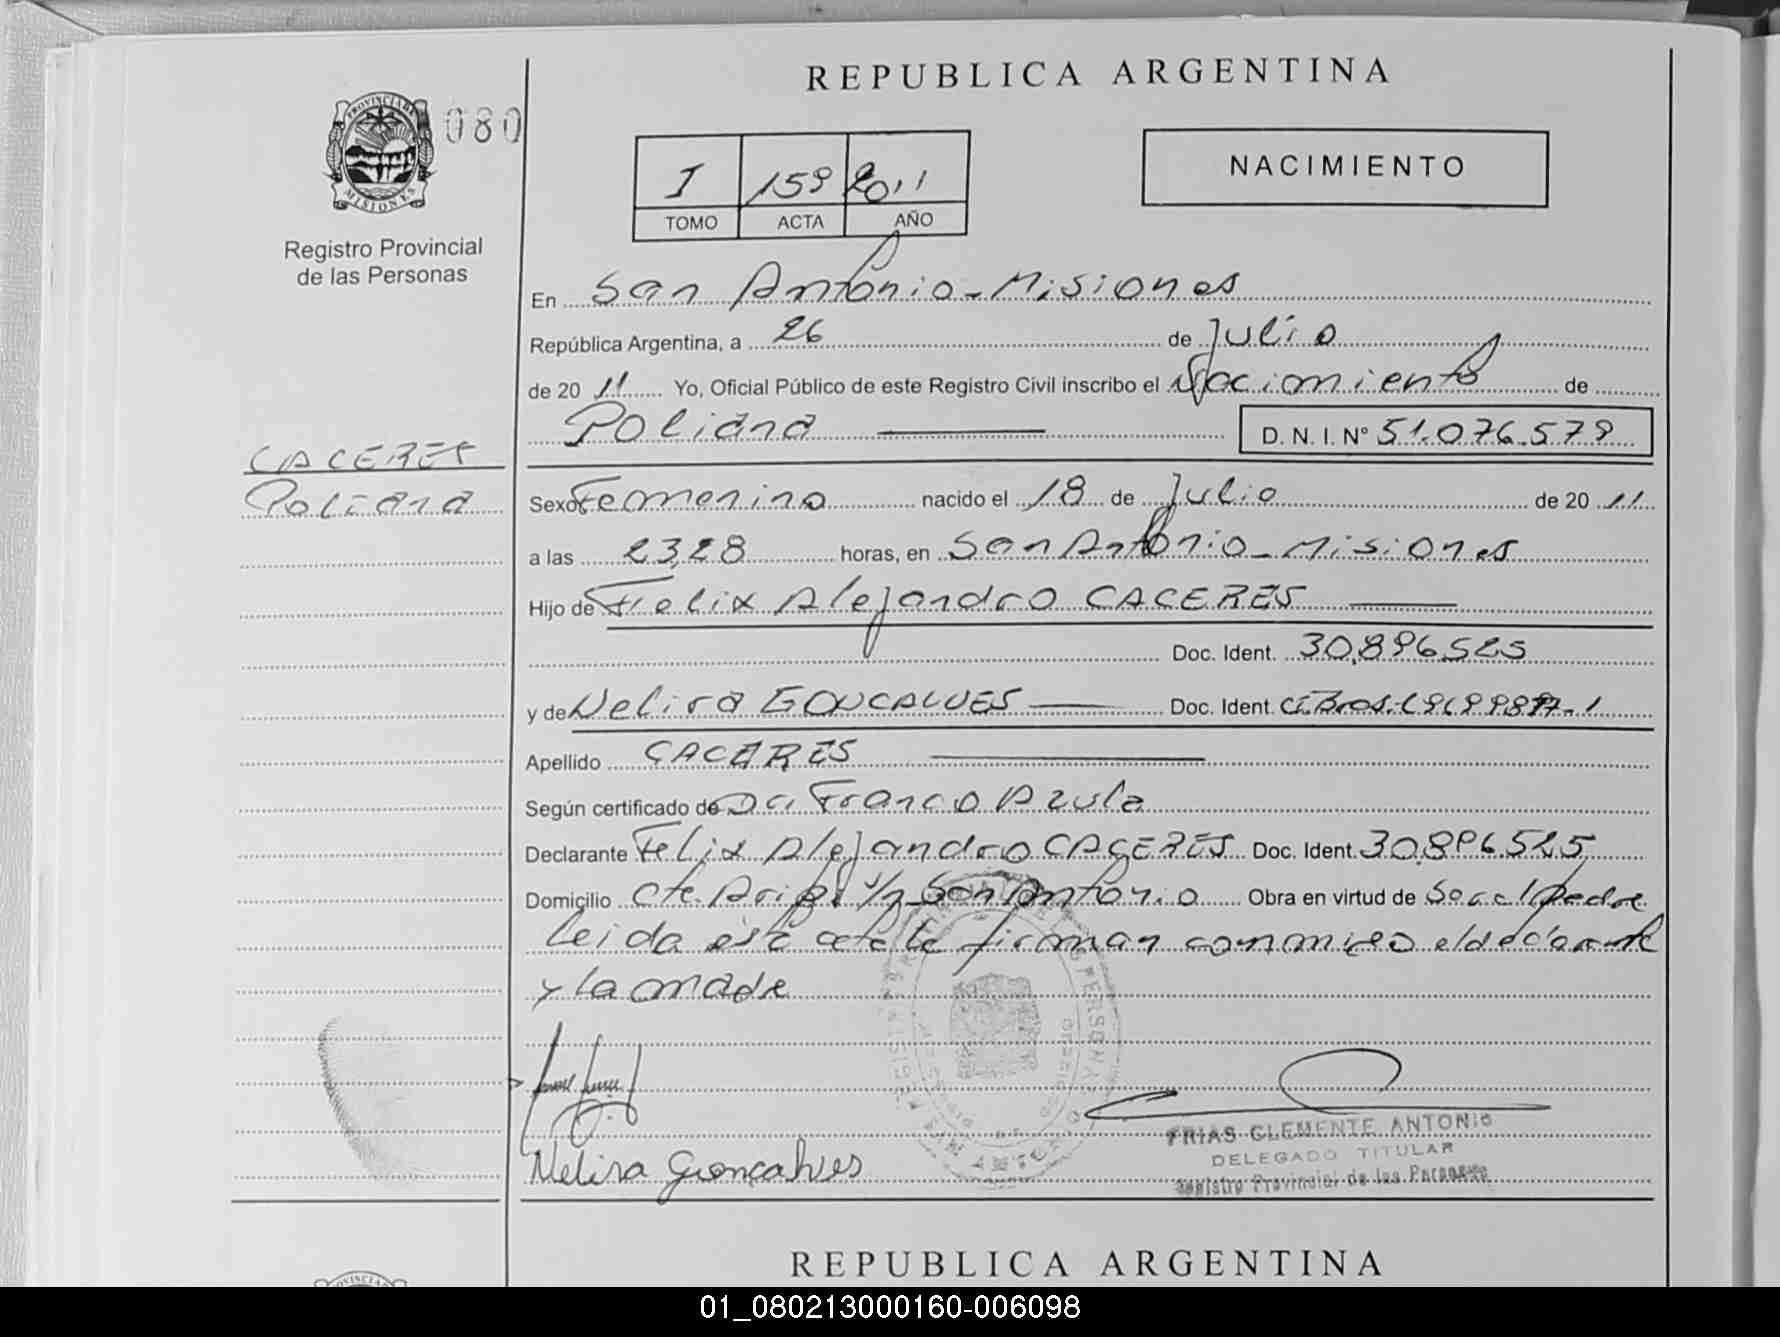 REPUBLICA ARGENTINA
PROVINCIA DE MISIONES
080
I 159 2011
TOMO ACTA AÑO
NACIMIENTO
Registro Provincial
de las Personas
En San Antonio - Misiones
República Argentina, a 26 de Julio
de 20 11 Yo, Oficial Público de este Registro Civil inscribo el Nacimiento de
Poliana D. N. I. Nº 51.076.579
CACERES
Poliana
Sexo Femenino nacido el 18 de Julio de 20 11
a las 23,28 horas, en San Antonio - Misiones
Hijo de Felix Alejandro CACERES
Doc. Ident. 30.896.525
y de Nelira GONCALVES Doc. Ident.
Apellido CACERES
Según certificado de Dr. Franco Azula
Declarante Felix Alejandro CACERES Doc. Ident. 30.896.525
Domicilio Cte. S/n San Antonio Obra en virtud de
Leida esta acta la firman conmigo el declarante
y la madre
Nelira Goncalves
FRIAS CLEMENTE ANTONIO
DELEGADO TITULAR
Registro Provincial de las Personas
REPUBLICA ARGENTINA
01_080213000160-006098